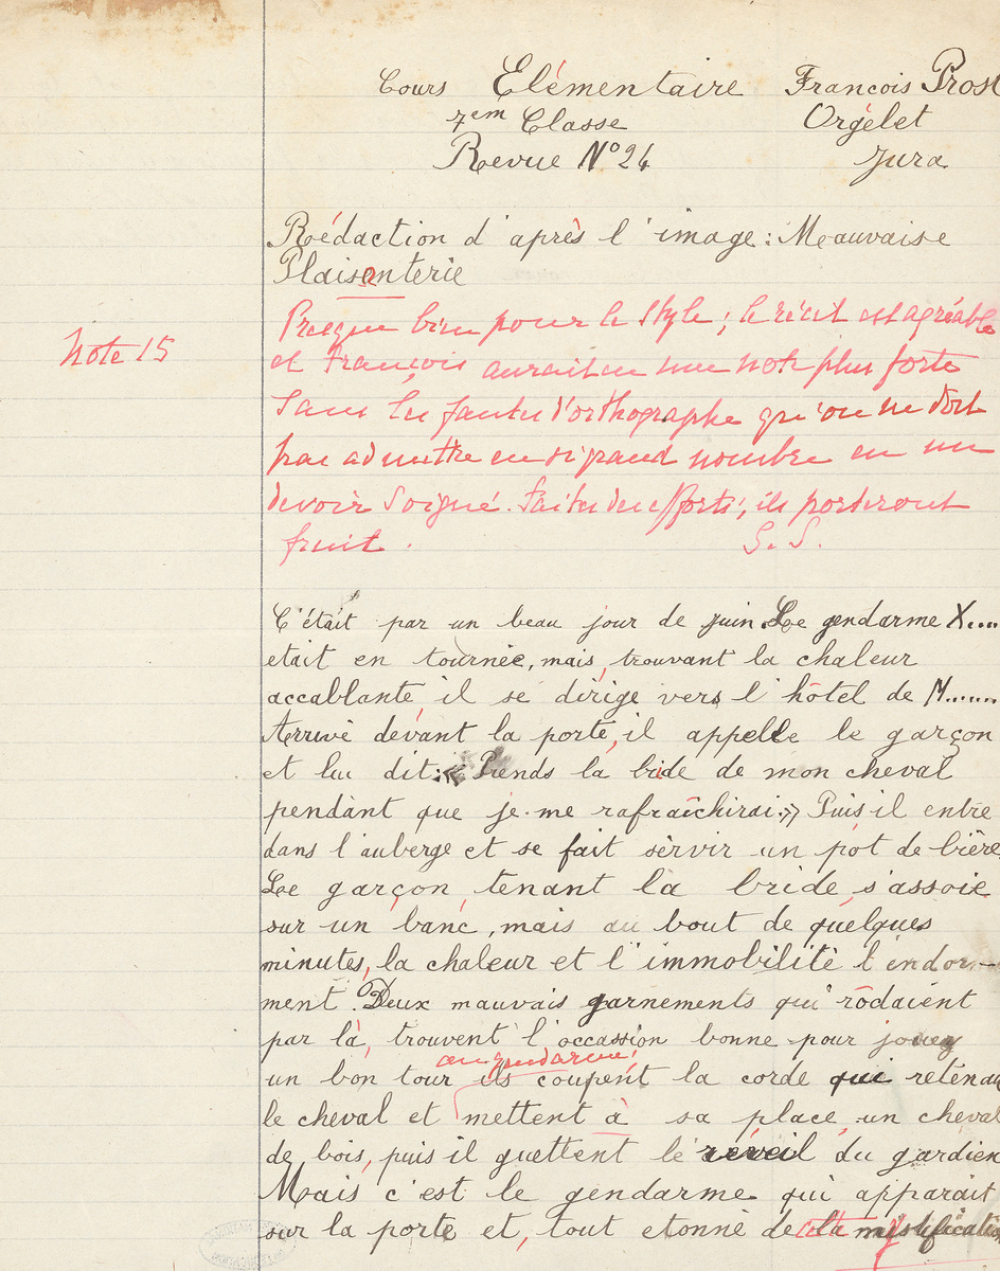 Cours Elémentaire François Prost
7em Classe Orgelet
Revue N° 24 Jura
Rédaction d'après l'image : Mauvaise
Plaisanterie
Note 15
Presque bien pour le style ; le récit est agréable
et François aurait eu une note plus forte
sans les fautes d'orthographe qu'on ne doit
pas admettre en si grand nombre en un
devoir soigné. Faites des efforts ; ils porteront
fruit. S. S.
C'était par un beau jour de juin. Le gendarme X....
etait en tournée, mais, trouvant la chaleur
accablante, il se dirige vers l'hôtel de M......
Arrivé devant la porte, il appelle le garçon
et lui dit : « Prends la bride de mon cheval
pendant que je me rafraîchirai. » Puis il entre
dans l'auberge et se fait servir un pot de bière.
Le garçon, tenant la bride, s'assoie
sur un banc, mais au bout de quelques
minutes, la chaleur et l'immobilité l'endor-
ment. Deux mauvais garnements qui rôdaient
par là, trouvent l'occassion bonne pour jouer
au gendarme,
un bon tour ils coupent la corde qui retenait
le cheval et mettent à sa place, un cheval
de bois, puis il guettent le réveil du gardien
Mais c'est le gendarme qui apparait
sur la porte et, tout etonné de cette mystification